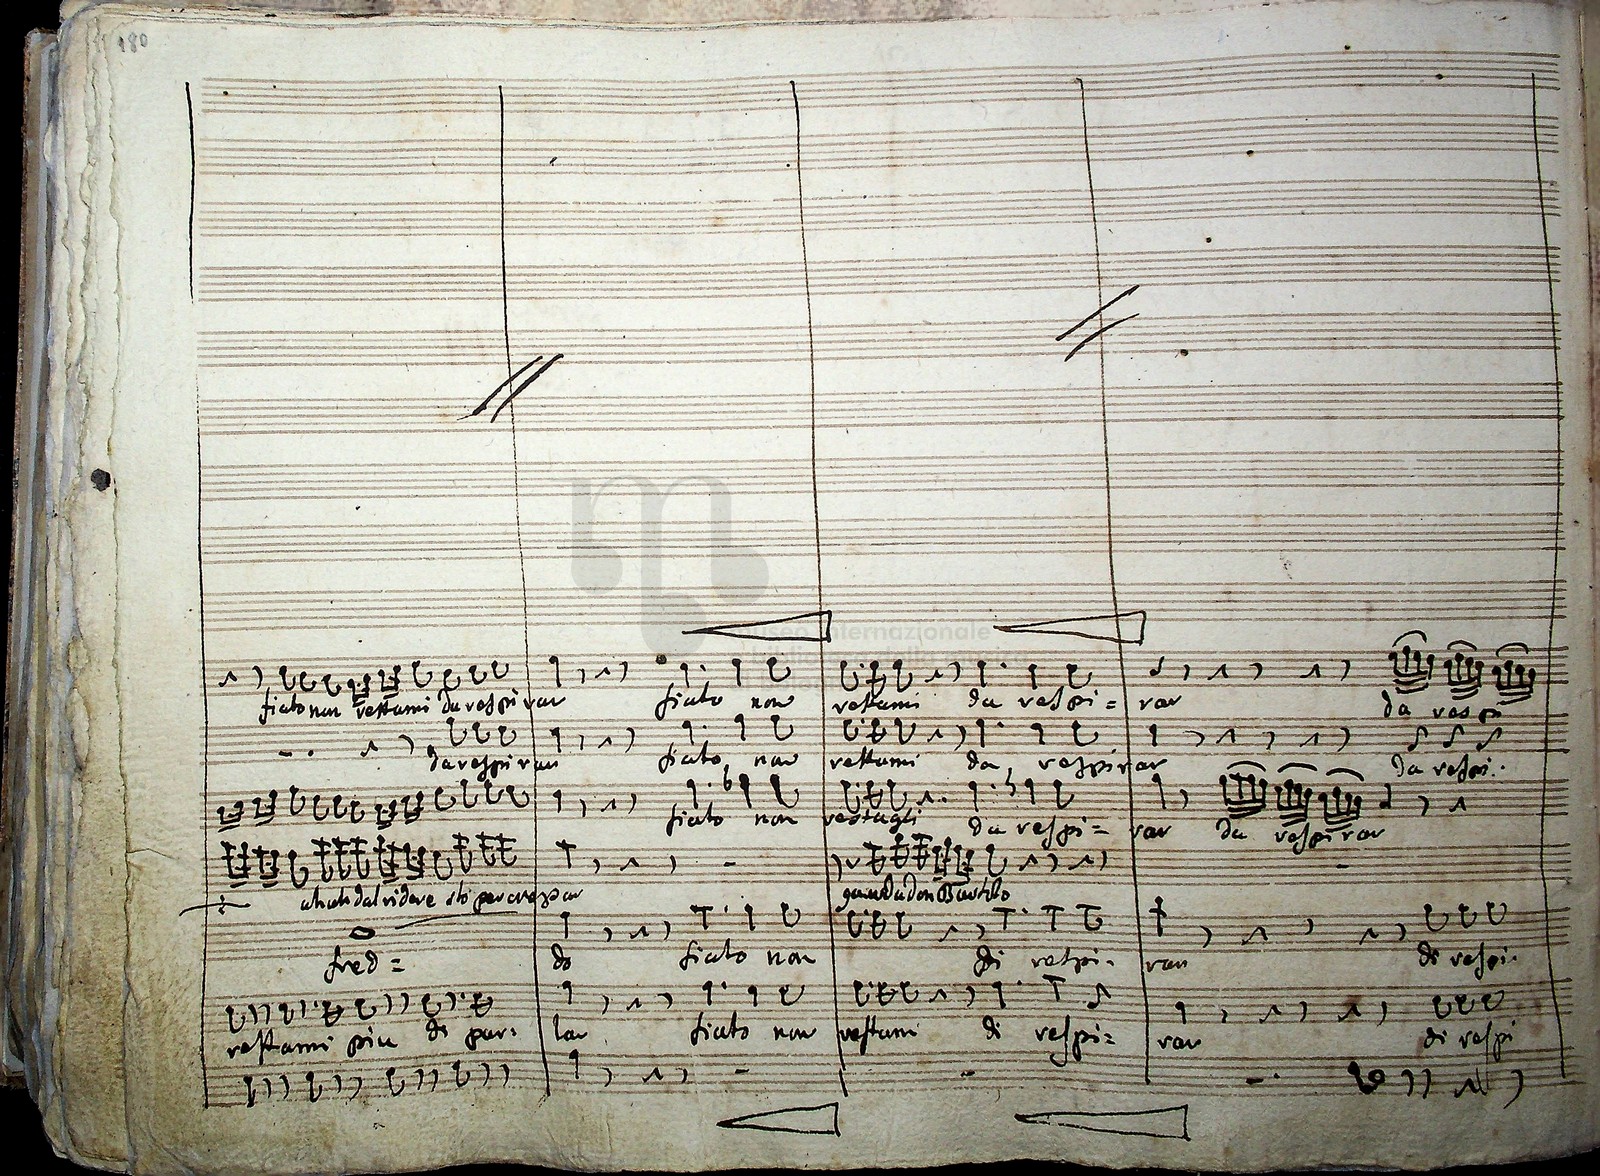 180
museo internazionale
fiato non restami da respirar fiato non restami da respi= rar da respi
da respirar fiato non restami da respirar da respi.
fiato non restagli da respi= rar da respirar
ahahah dal ridere sto per crepar guarda Don Bartolo
fred= do fiato non di respi. rar di respi.
restami piu di par. lar fiato non restami di respi= rar di respi